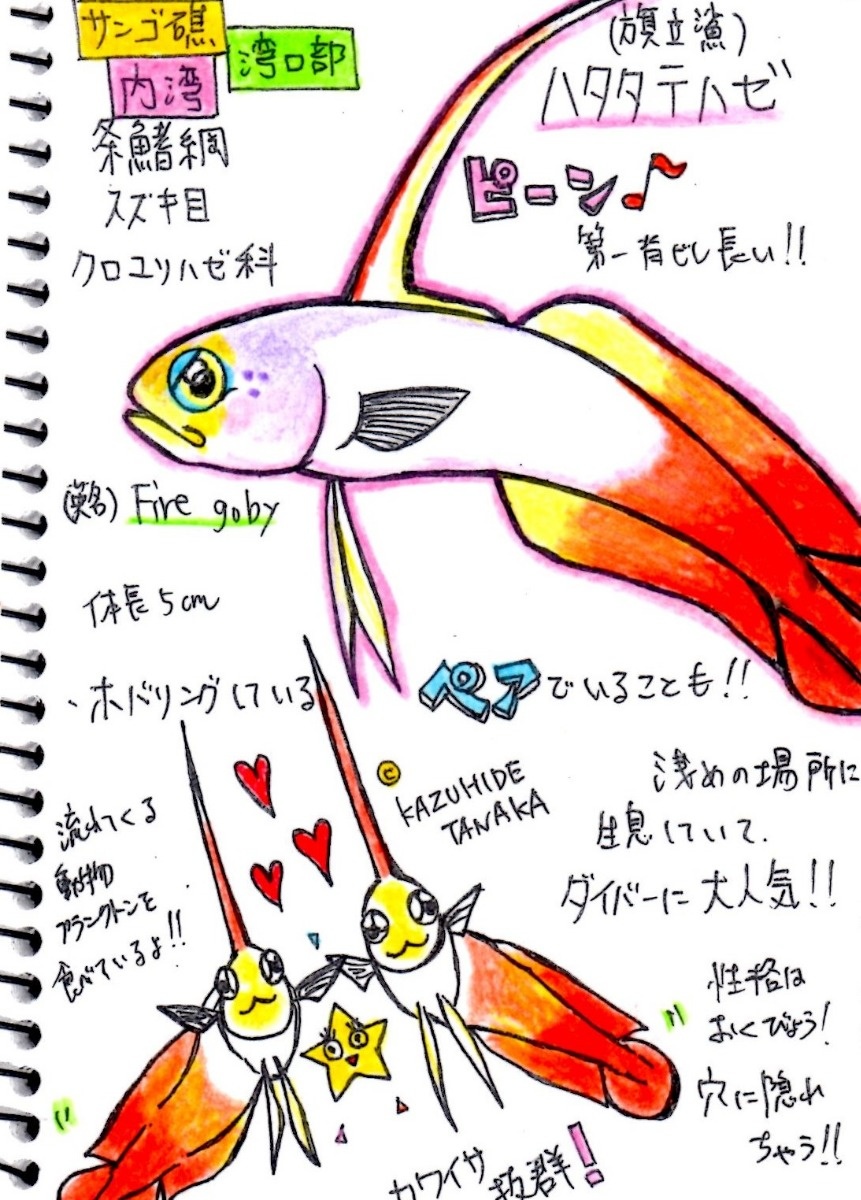 サンゴ礁
湾口部
内湾
条鰭綱
スズキ目
クロユリハゼ科
(旗立鯊)
ハタタテハゼ
ピーン♪
第一背ビレ長い!!
(英名) Fire goby
体長5cm
・ホバリングしている
ペアでいることも!!
© KAZUHIDE
TANAKA
流れてくる
動物
プランクトンを
食べているよ!!
浅めの場所に
生息していて、
ダイバーに大人気!!
性格は
おくびょう!
穴に隠れ
ちゃう!!
カワイサ抜群!